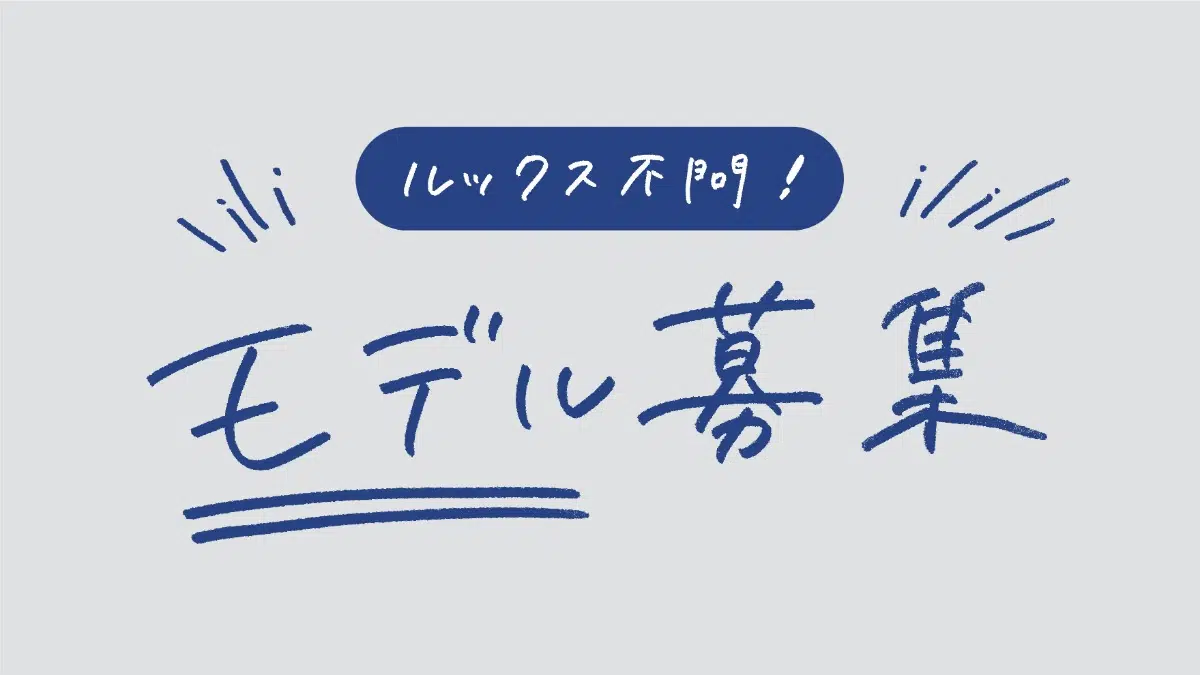 ルックス不問！
モデル募集